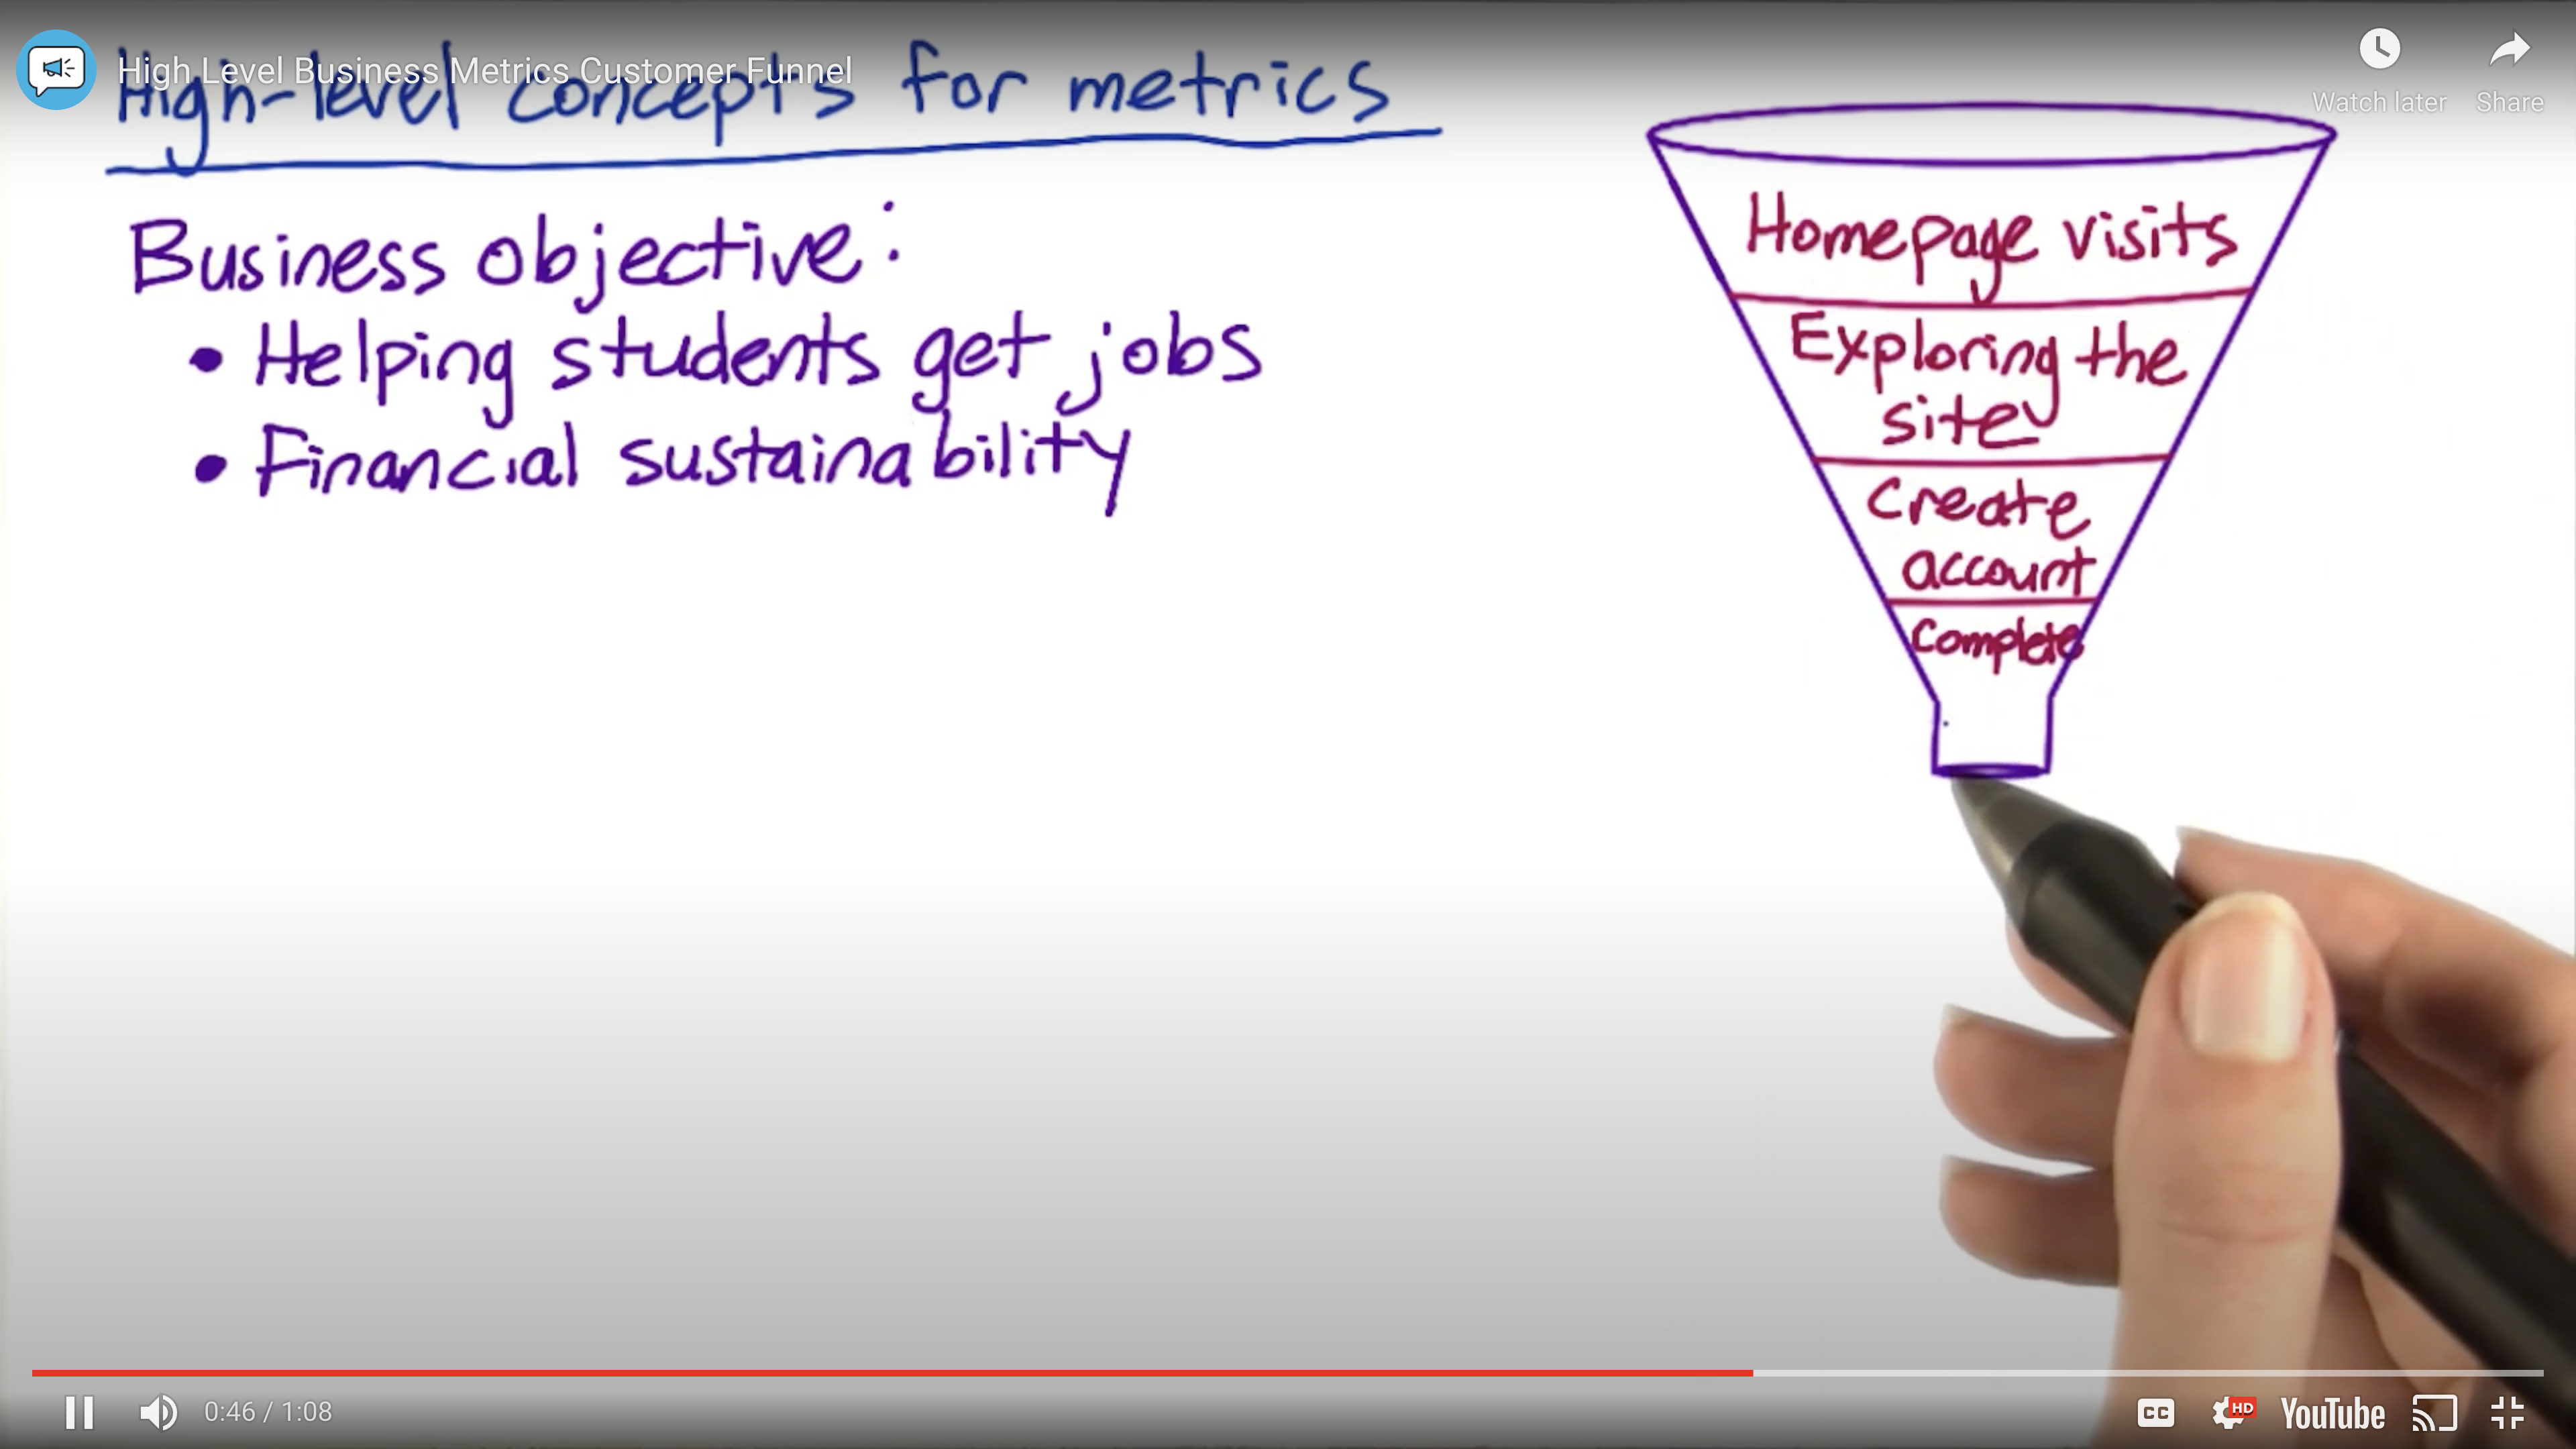 High Level Business Metrics Customer Funnel
Watch later
Share
High-level concepts for metrics
Business objective:
• Helping students get jobs
• Financial sustainability
Homepage visits
Exploring the
site
Create
account
Complete
0:46 / 1:08
CC
HD
YouTube